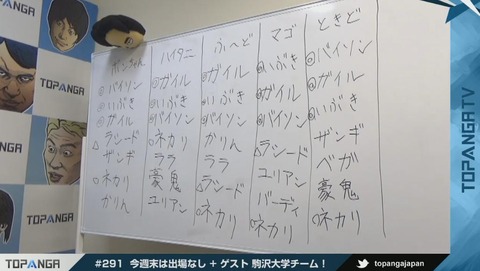 TOPANGA
TOPANGA
TOPANGA
ボンちゃん
◎バイソン
◎いぶき
◎ガイル
△ラシード
ザンギ
○ネカリ
かりん
ハイタニ
◎ガイル
◎いぶき
◎バイソン
○ネカリ
ララ
豪鬼
ユリアン
ふ〜ど
◎ガイル
◎いぶき
◎バイソン
かりん
ララ
△ラシード
○ネカリ
マゴ
◎いぶき
◎ガイル
◎バイソン
△ラシード
ユリアン
バーディ
○ネカリ
ときど
◎バイソン
◎ガイル
◎いぶき
ザンギ
ベガ
豪鬼
○ネカリ
TOPANGA TV
TOPANGA
#291 今週末は出場なし + ゲスト 駒沢大学チーム！
topangajapan